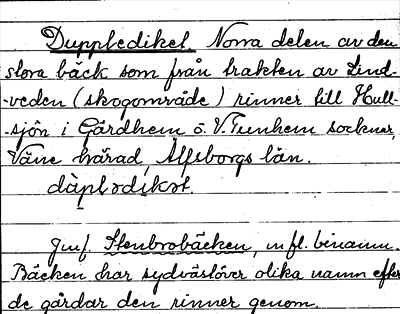 Duppledikel. Norra delen av den
stora bäck som från trakten av Lind-
-veden (skogområde) rinner till Hull-
-sjön i Gärdhem o. V. Tunhem socknar,
Väne härad, Älfsborgs län.
dàpləd̄ikət.
Jmf. Stenbrobäcken, m fl. binamn.
Bäcken har sydvästöver olika namn efter
de gårdar den rinner genom.